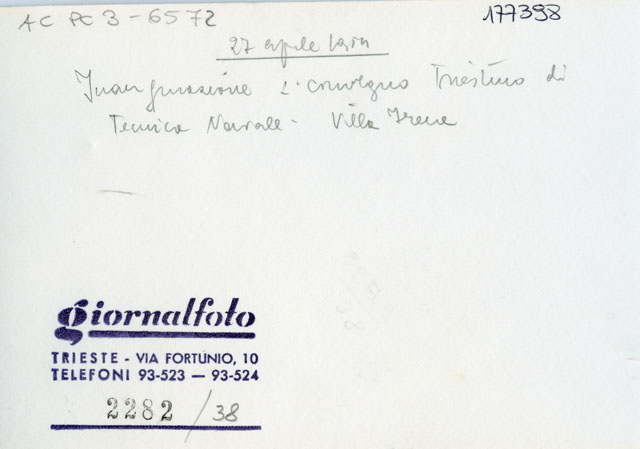 AC PC 3-6572
177398
27 aprile
Inaugurazione 1° convegno Triestino di
Tecnica Navale - Villa Irene
giornalfoto
TRIESTE - VIA FORTUNIO, 10
TELEFONI 93-523 — 93-524
2282/38